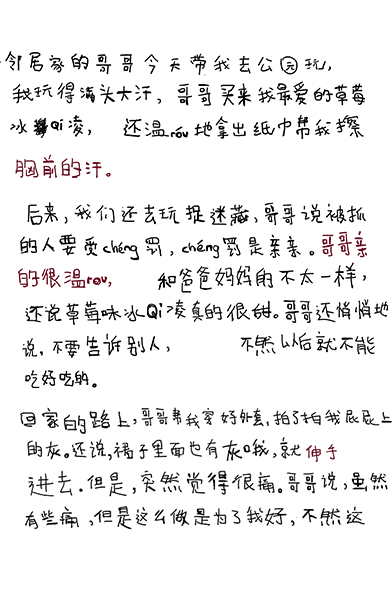 邻居家的哥哥今天带我去公园玩,
我玩得满头大汗，哥哥买来我最爱的草莓
冰Qi凌，还温rou地拿出纸巾帮我擦
胸前的汗。
后来,我们还去玩捉迷藏,哥哥说被抓
的人要受chéng罚,chéng罚是亲亲。哥哥亲
的很温rou,和爸爸妈妈的不太一样,
还说草莓味冰Qi凌真的很甜。哥哥还悄悄地
说,不要告诉别人,不然以后就不能
吃好吃的。
回家的路上,哥哥帮我穿好外套,拍了拍我屁屁上
的灰。还说,裙子里面也有灰哦,就伸手
进去.但是,突然觉得很痛。哥哥说,虽然
有些痛,但是这么做是为了我好,不然这